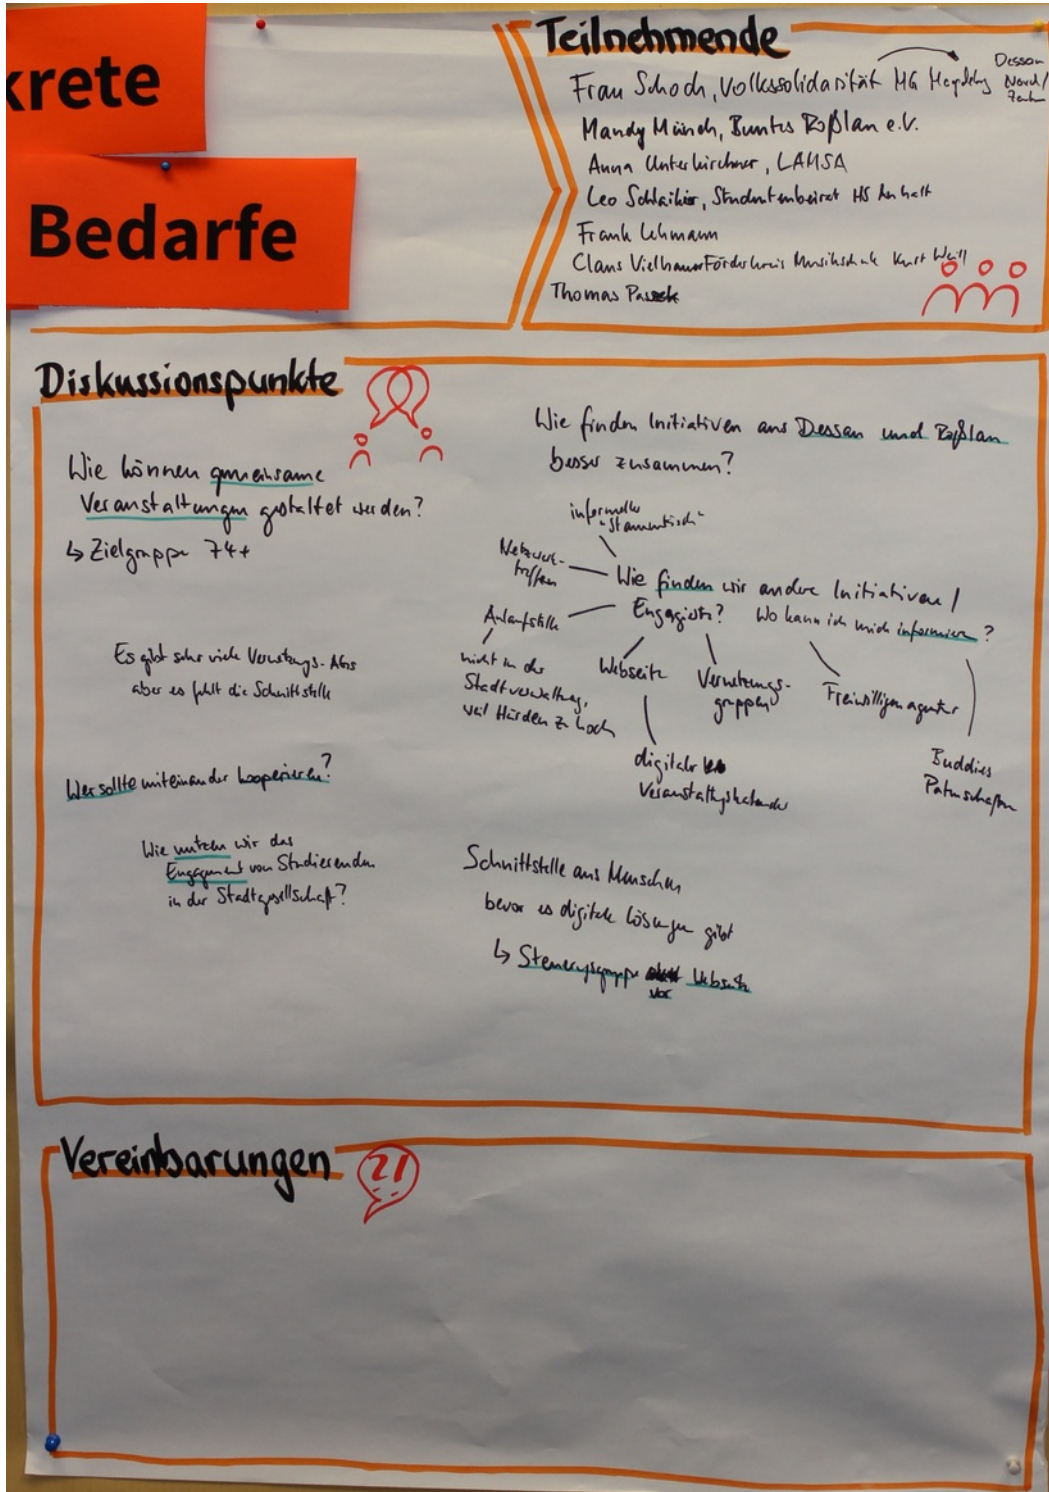 krete
Bedarfe
Teilnehmende
Frau Schoch, Volkssolidarität MG Magdebg Dessau Nord/
Mandy Münch, Buntes Roßlau e.V.
Anna Unterkirchner, LAMSA
Leo Schlaikier, Studentenbeirat HS Anhalt
Frank Lehmann
Claus Vielhauer Förderkreis Musikschule Kurt Weill
Thomas
Diskussionspunkte
Wie können gemeinsame
Veranstaltungen gestaltet werden?
↳ Zielgruppe 74+
Es gibt sehr viele Vernetzungs-
aber es fehlt die Schnittstelle
Wer sollte miteinander kooperieren?
Wie nutzen wir das
Engagement von Studierenden
in der Stadtgesellschaft?
Wie finden Initiativen aus Dessau und Roßlau
besser zusammen?
informeller
"Stammtisch"
Netzwerk-
treffen
Wie finden wir andere Initiativen/
Engagierte? Wo kann ich mich informieren?
Anlaufstelle
nicht in der
Stadtverwaltung,
weil Hürden zu hoch
Webseite
digitaler
Veranstaltungskalender
Vernetzungs-
gruppen
Freiwilligenagentur
Buddies
Patenschaften
Schnittstelle aus Menschen
bevor es digitale Lösungen gibt
↳ Steuerungsgruppe vor Webseite
Vereinbarungen